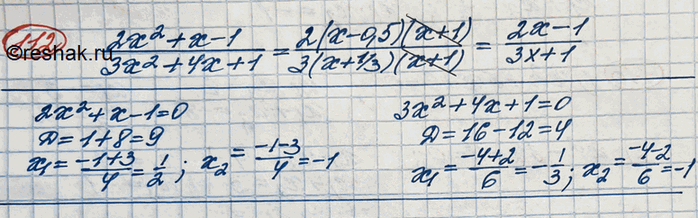 112 (2x² + x - 1)/(3x² + 4x + 1) = (2(x - 0,5)(x + 1))/(3(x + 1/3)(x + 1)) = (2x - 1)/(3x + 1)
©reshak.ru
2x² + x - 1 = 0
D = 1 + 8 = 9
x₁ = (-1+3)/4 = 1/2 ; x₂ = (-1-3)/4 = -1
3x² + 4x + 1 = 0
D = 16 - 12 = 4
x₁ = (-4+2)/6 = -1/3 ; x₂ = (-4-2)/6 = -1